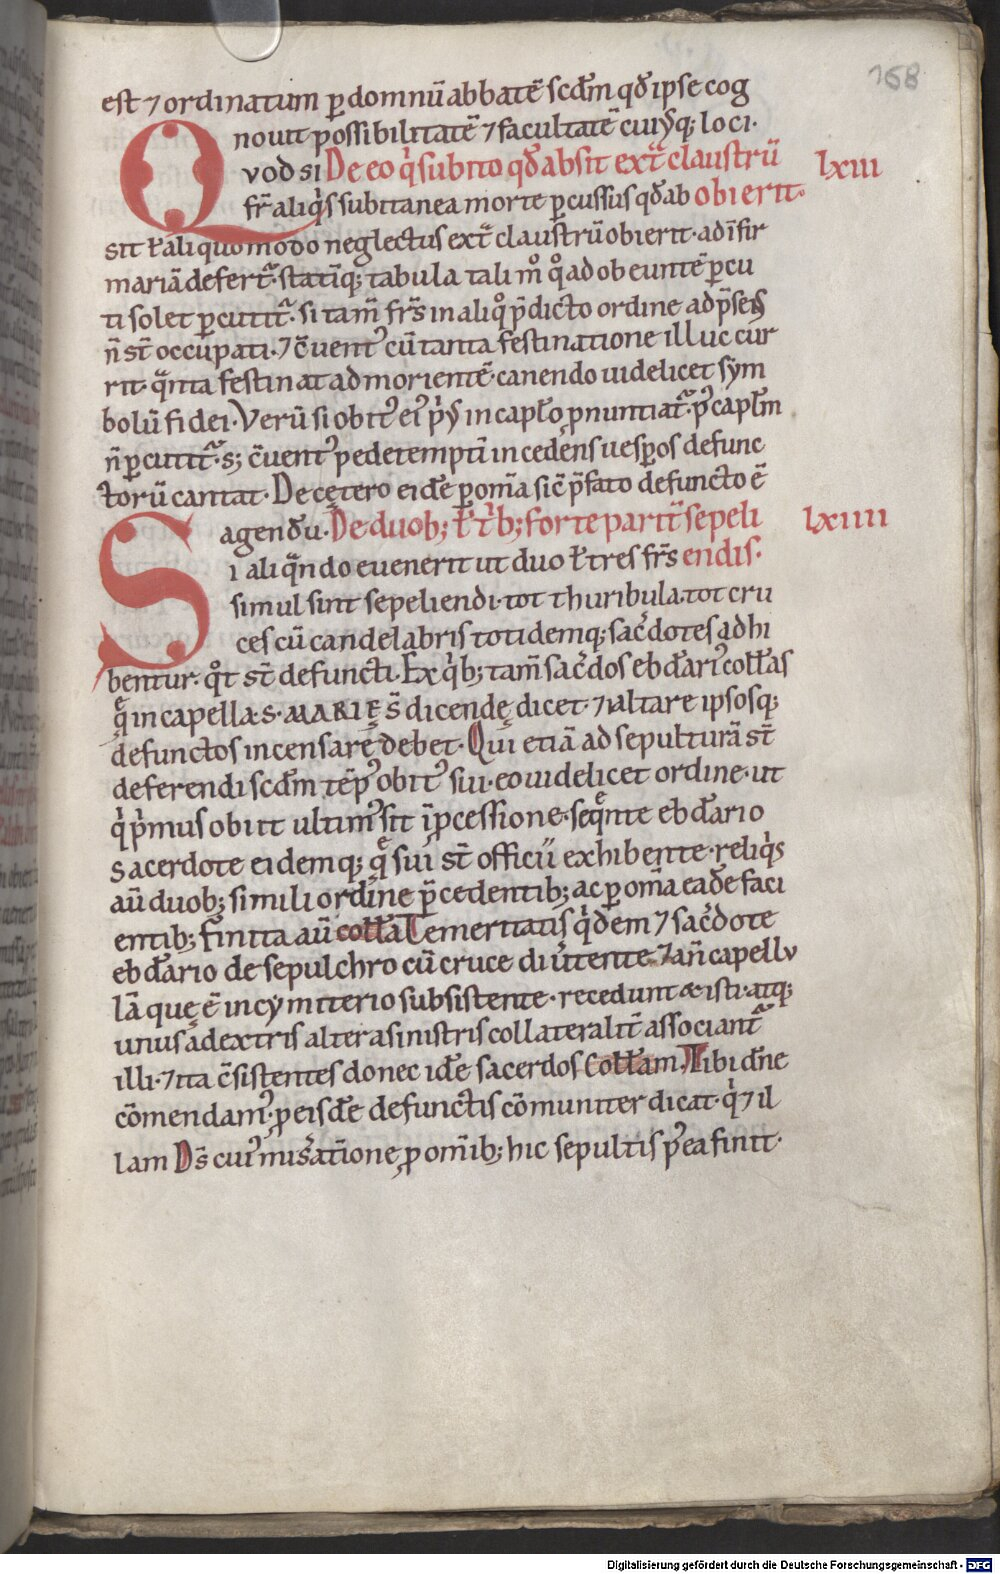 168
est ⁊ ordinatum ꝑ domnū abbatē scdm̄ qđ ipse cog
nouit possibilitatē ⁊ facultatē cuiꝰq; loci.
Qvod si De eo q̇ subito qđ absit ext̃ claustrū lxiii
fr̄ aliq̇s subitanea morte ꝑcussus qđ ab obierit.
sit ł aliquomodo neglectus ext̃ claustrū obierit. ad īfir
mariā defert᷑. statīq; tabula tali m̊ q̊ ad obeuntē ꝑcu
ti solet ꝑcutit᷑. si tam̄ fr̄s in aliq̊ p̄dicto ordine ad p̄seīs
n̄ st̄ occupati. ⁊ c̄uentꝰ cū tanta festinatione illuc cur
rit. q̃nta festinat ad morientē. canendo uidelicet sym
bolū fidei. Verū si obitꝰ eiꝰ p̓ꝰ in capło ꝓnuntiat᷑. pꝰ capłm
n̄ ꝑcutit᷑. s; c̄uentꝰ pedetemptī incedens uesꝑos defunc
torū cantat. De cętero eidē ꝑ om̄ia sic̄ p̄fato defuncto ē
agendū. De duob; ł t'b; forte parit᷑ sepeli lxiiii
Si aliq̃ndo euenerit ut duo ł tres fr̄s endis.
simul sint sepeliendi. tot thuribula. tot cru
ces cū candelabris totidemq; sac̓dotes adhi
bentur. q̊t st̄ defuncti. Ex q̇b; tam̄ sac̓dos ebđariꝰ coll̄as
q̄ in capella S. MARIĘ s̄ dicendę dicet. ⁊ altare ipsosq;
defunctos incensare debet. Qui etiā ad sepulturā st̄
deferendi scdm̄ tēpꝰ obitꝰ sui. eo uidelicet ordine. ut
q̇ p̓mus obiit ultimꝰ sit ī ꝓcessione. seq̄nte ebđario
sacerdote eidemq; q̄ sui st̄ officii exhibente. reliq̇s
aū duob; simili ordine p̄cedentib; ac ꝑ om̄ia eadē faci
entib; finita aū coll̄a Temeritatis q̇dem ⁊ sac̓dote
ebđario de sepulchro cū cruce diu̓tente. ⁊ an̄ capellv
lā quę ē in cymiterio subsistente. recedunt & isti. atq;
unus a dextris alter a sinistris collateralit̄ associant᷑
illi. ⁊ ita c̄sistentes donec idē sacerdos Coll̄am. Tibi dn̄e
cōmendamꝰ. ꝓ eisdē defunctis cōmuniter dicat. q̇ ⁊ il
lam Ds̄ cuiꝰ mis̓atione ꝓ om̄ib; hic sepultis p̓ea finit.
Digitalisierung gefördert durch die Deutsche Forschungsgemeinschaft - DFG